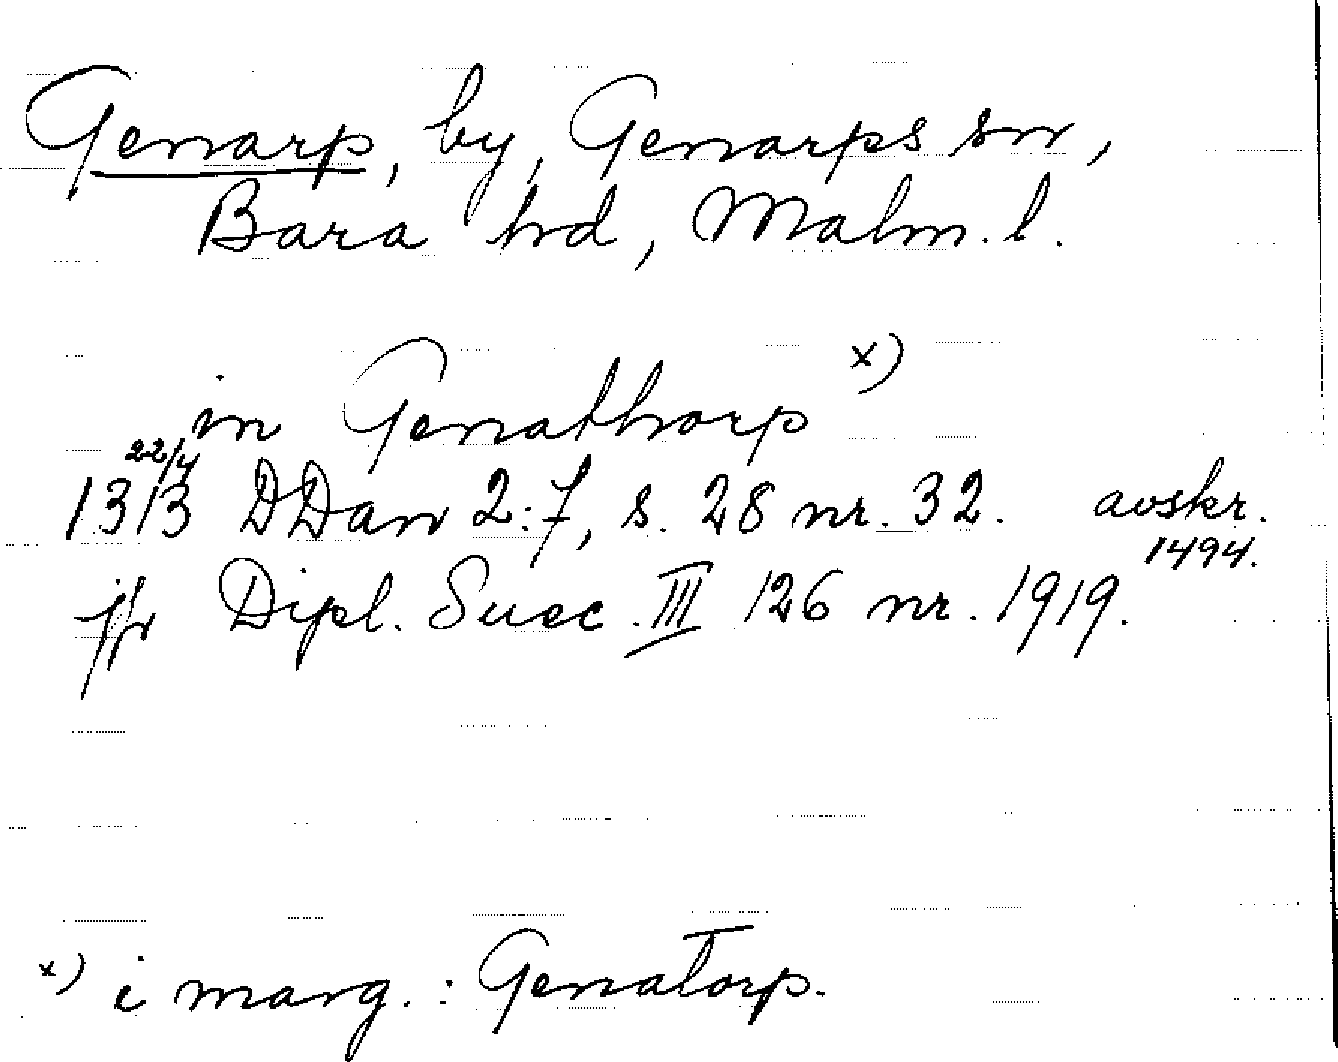 Genarp, by, Genarps sn,
Bara hd, Malm. l.
in Genathorp x)
22/4
1313 DDan 2:7, s. 28 nr. 32. avskr.
1494.
jfr Dipl. Suec. III 126 nr. 1919.
x) i marg.: Genatorp.